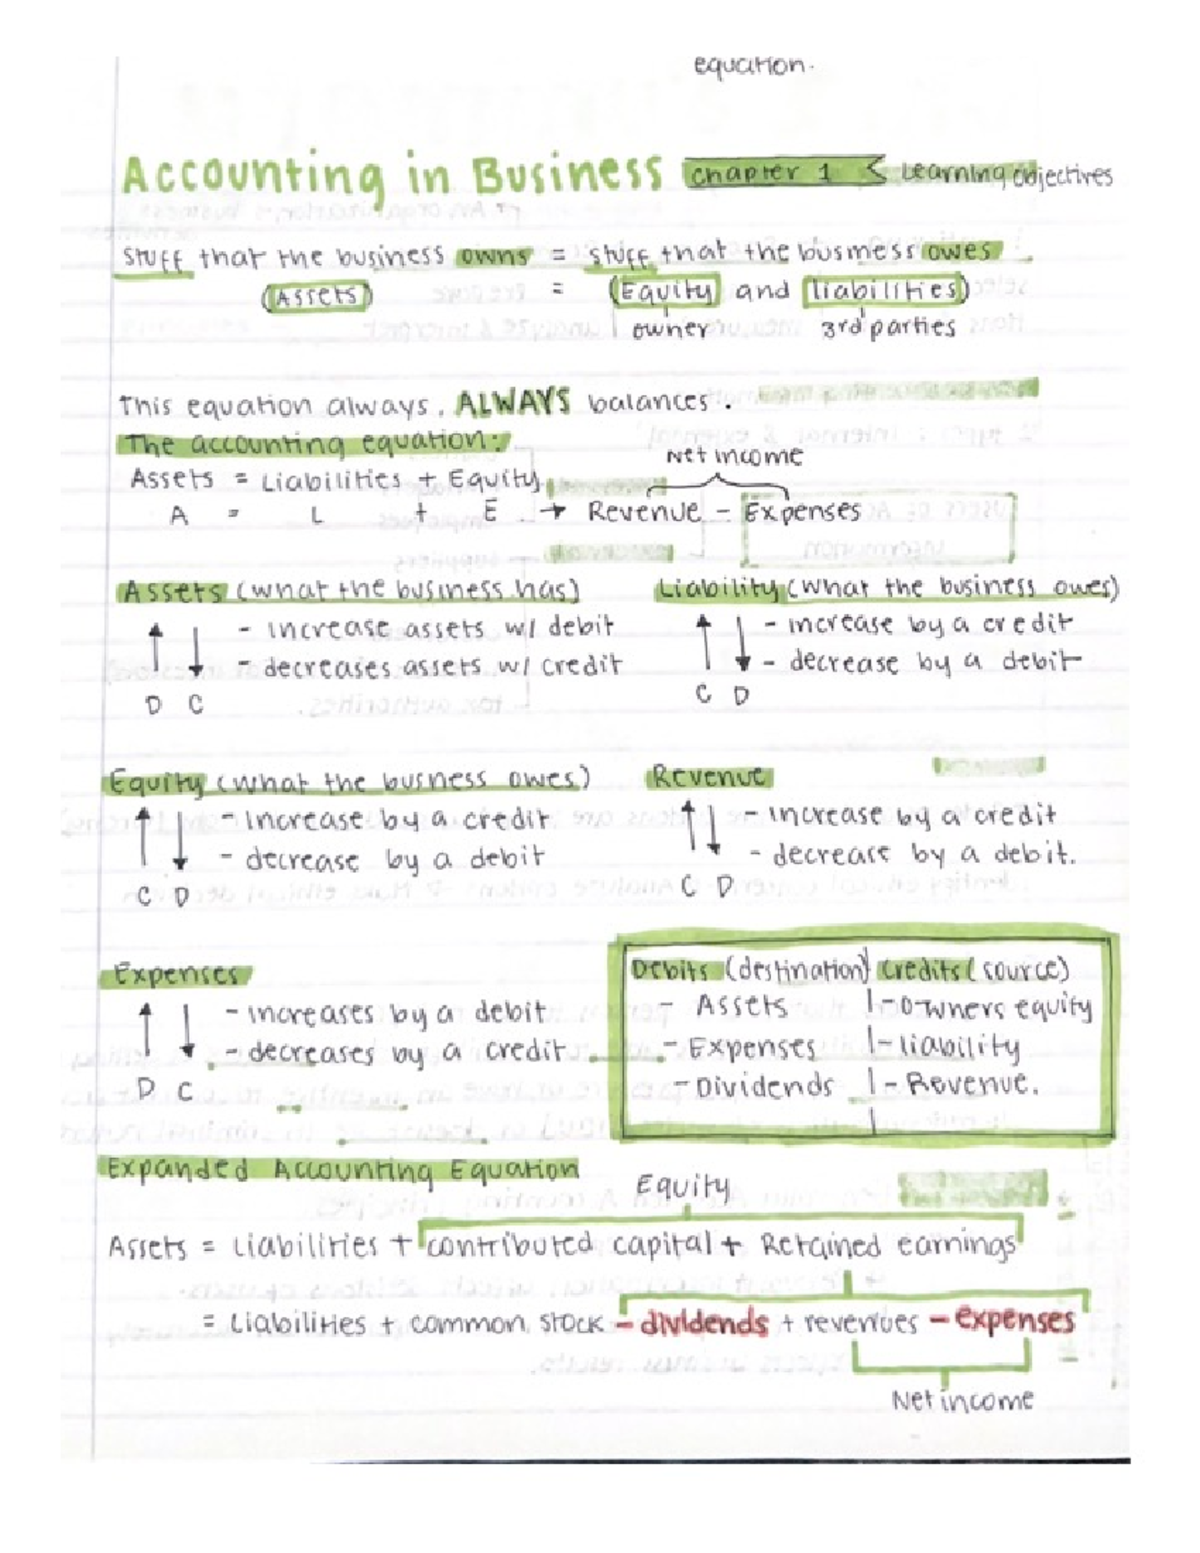 equation.
Accounting in Business chapter 1 Learning objectives
Stuff that the business owns = stuff that the business owes
(Assets) = (Equity and liabilities)
owner 3rd parties
This equation always, ALWAYS balances.
The accounting equation:
Net income
Assets = Liabilities + Equity
A = L + E → Revenue - Expenses
Assets (what the business has)
- increase assets w/ debit
- decreases assets w/ credit
D C
Liability (what the business owes)
- increase by a credit
- decrease by a debit
C D
Equity (what the business owes)
- Increase by a credit
- decrease by a debit
C D
Revenue
- increase by a credit
- decrease by a debit.
C D
Expenses
- increases by a debit
- decreases by a credit
D C
Debits (destination) Credits (source)
- Assets - Owners equity
- Expenses - liability
- Dividends - Revenue.
Expanded Accounting Equation
Equity
Assets = Liabilities + contributed capital + Retained earnings
= Liabilities + common stock - dividends + revenues - expenses
Net income